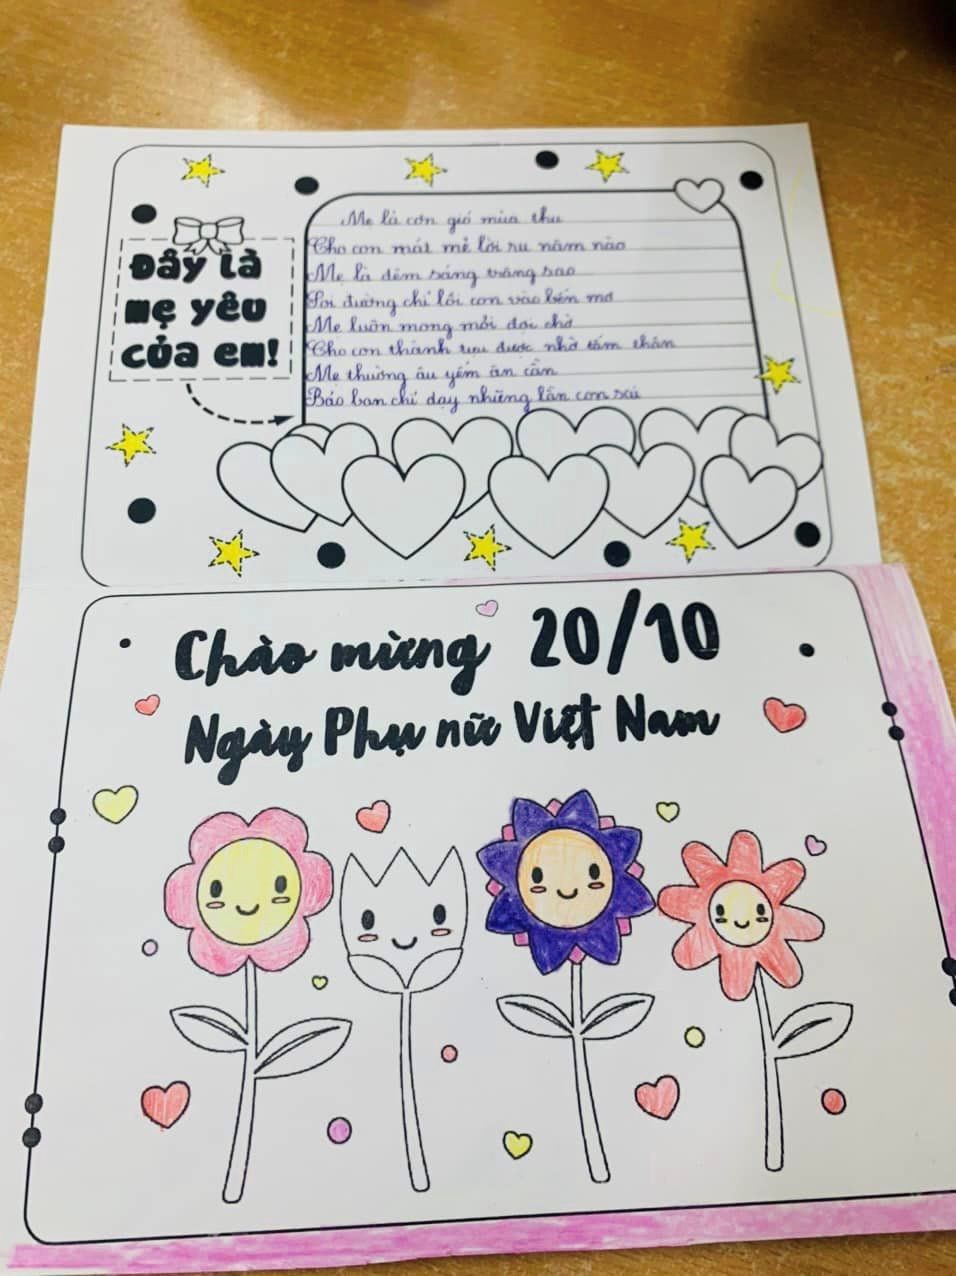 Đây là
mẹ yêu
của em!
Mẹ là cơn gió mùa thu
Cho con mát mẻ lời ru năm nào
Mẹ là đêm sáng trăng sao
Soi đường chỉ lối con vào bến mơ
Mẹ luôn mong mỏi đợi chờ
Cho con thành tựu được nhờ tấm thân
Mẹ thường âu yếm ân cần
Bảo ban chỉ dạy những lần con sai
Chào mừng 20/10
Ngày Phụ nữ Việt Nam